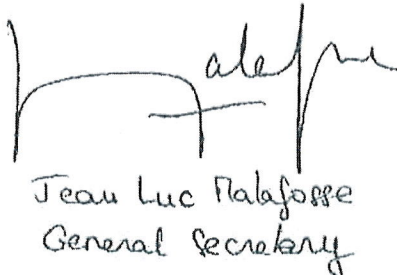 Jean Luc Malafosse
General Secretary